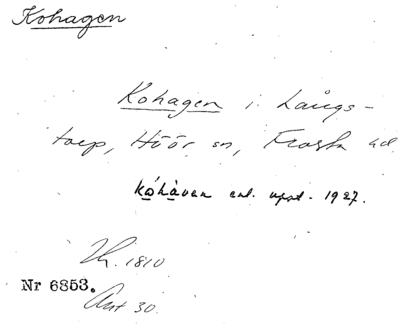 Kohagen
Kohagen i Långs-
torp, Höör sn, Frosta hd.
kóhàven enl. uppt. 1927.
Th. 1810
Nr 6853.
Ant 30.